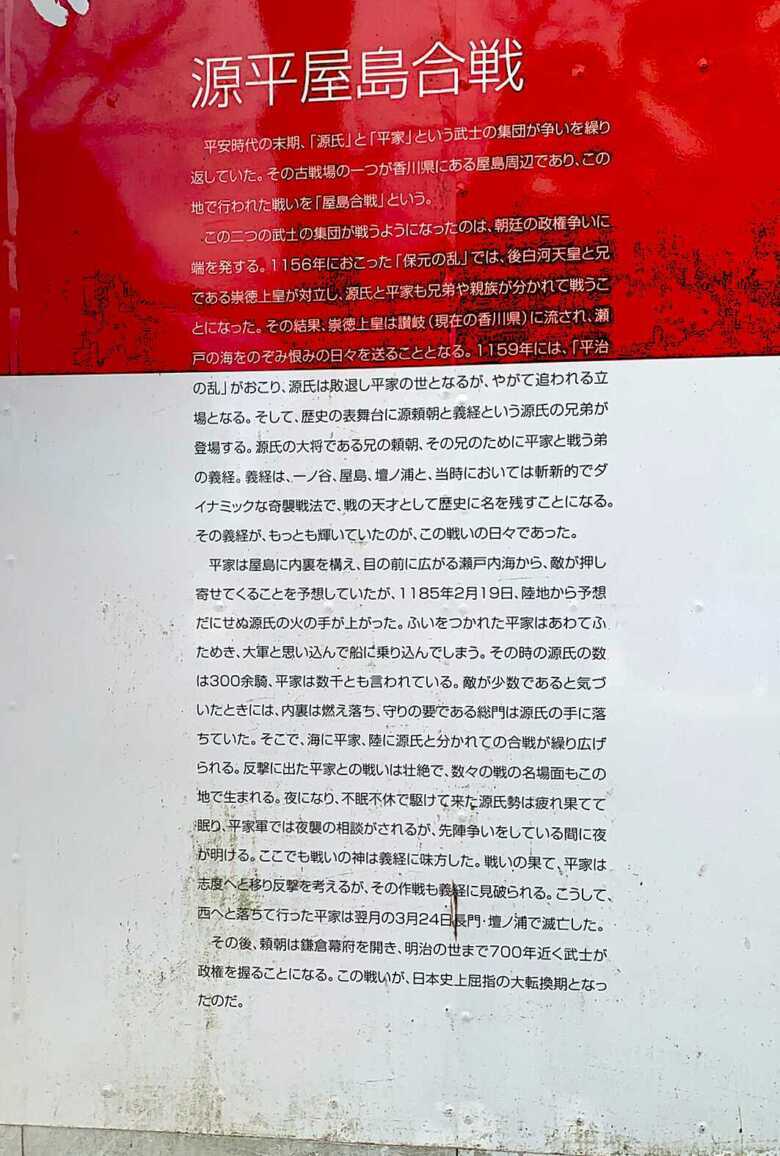 源平屋島合戦
平安時代の末期、「源氏」と「平家」という武士の集団が争いを繰り
返していた。その古戦場の一つが香川県にある屋島周辺であり、この
地で行われた戦いを「屋島合戦」という。
この二つの武士の集団が戦うようになったのは、朝廷の政権争いに
端を発する。1156年におこった「保元の乱」では、後白河天皇と兄
である崇徳上皇が対立し、源氏と平家も兄弟や親族が分かれて戦うこ
とになった。その結果、崇徳上皇は讃岐(現在の香川県)に流され、瀬
戸の海をのぞみ恨みの日々を送ることとなる。1159年には、「平治
の乱」がおこり、源氏は敗退し平家の世となるが、やがて追われる立
場となる。そして、歴史の表舞台に源頼朝と義経という源氏の兄弟が
登場する。源氏の大将である兄の頼朝、その兄のために平家と戦う弟
の義経。義経は、一ノ谷、屋島、壇ノ浦と、当時においては斬新的でダ
イナミックな奇襲戦法で、戦の天才として歴史に名を残すことになる。
その義経が、もっとも輝いていたのが、この戦いの日々であった。
平家は屋島に内裏を構え、目の前に広がる瀬戸内海から、敵が押し
寄せてくることを予想していたが、1185年2月19日、陸地から予想
だにせぬ源氏の火の手が上がった。ふいをつかれた平家はあわてふ
ためき、大軍と思い込んで船に乗り込んでしまう。その時の源氏の数
は300余騎、平家は数千とも言われている。敵が少数であると気づ
いたときには、内裏は燃え落ち、守りの要である総門は源氏の手に落
ちていた。そこで、海に平家、陸に源氏と分かれての合戦が繰り広げ
られる。反撃に出た平家との戦いは壮絶で、数々の戦の名場面もこの
地で生まれる。夜になり、不眠不休で駆けて来た源氏勢は疲れ果てて
眠り、平家軍では夜襲の相談がされるが、先陣争いをしている間に夜
が明ける。ここでも戦いの神は義経に味方した。戦いの果て、平家は
志度へと移り反撃を考えるが、その作戦も義経に見破られる。こうして、
西へと落ちて行った平家は翌月の3月24日長門・壇ノ浦で滅亡した。
その後、頼朝は鎌倉幕府を開き、明治の世まで700年近く武士が
政権を握ることになる。この戦いが、日本史上屈指の大転換期となっ
たのだ。